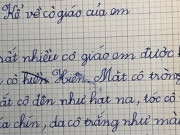 Kể về cô giáo của em
rất nhiều cô giáo em được h
cô hiền Hiền. Mắt cô tròn
mắt cô đen như hạt na, tóc cô
chín, da cô trắng như mâ